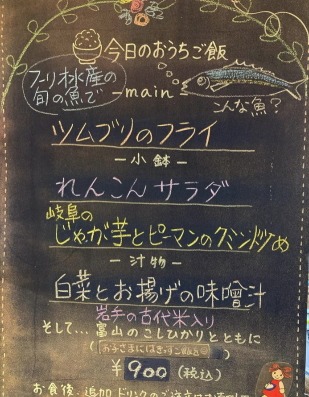 今日のおうちご飯
フーリ水産の
旬の魚で
-main-
こんな魚?
ツムブリのフライ
-小鉢-
れんこんサラダ
岐阜の
じゃが芋とピーマンのクミン炒め
-汁物-
白菜とお揚げの味噌汁
岩手の古代米入り
そして...富山のこしひかりとともに
¥900(税込)
お食後、追加ドリンクのご注文は